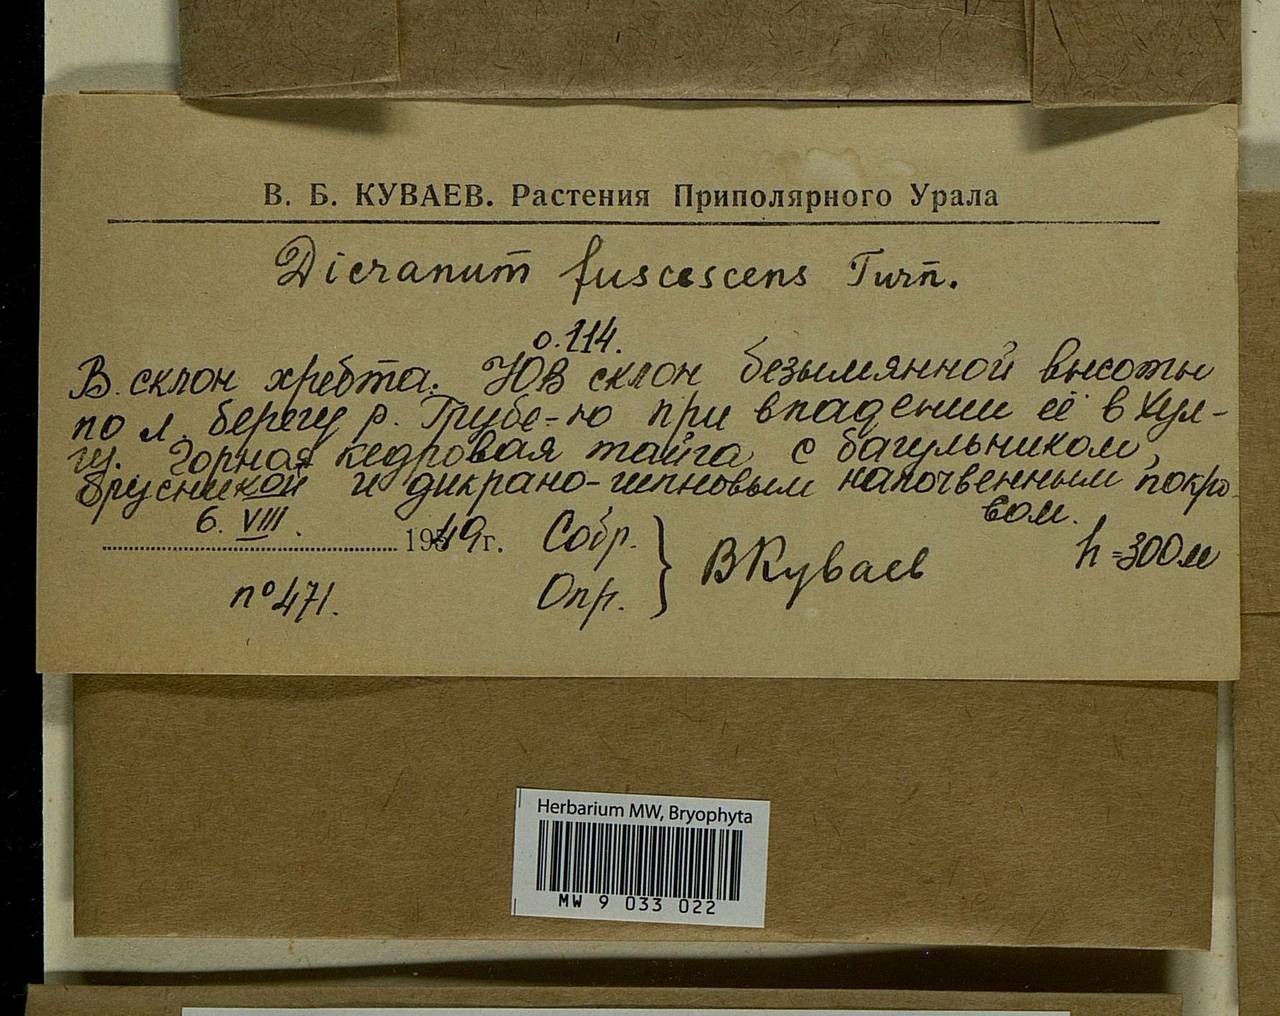 В. Б. КУВАЕВ. Растения Приполярного Урала
Dicranum̄ fuscescens Turn̄.
о. 114.
В. склон хребта. ЮВ склон безымянной высоты
по л. берегу р. Грубе-ю при впадении её в Хул-
гу. Горная кедровая тайга с багульником,
брусникой и дикрано-гипновым напочвенным покро-
вом.
6. VIII. 1949 г. Собр. } В Куваев h=300м
nº 471. Опр.
Herbarium MW, Bryophyta
MW 9 033 022